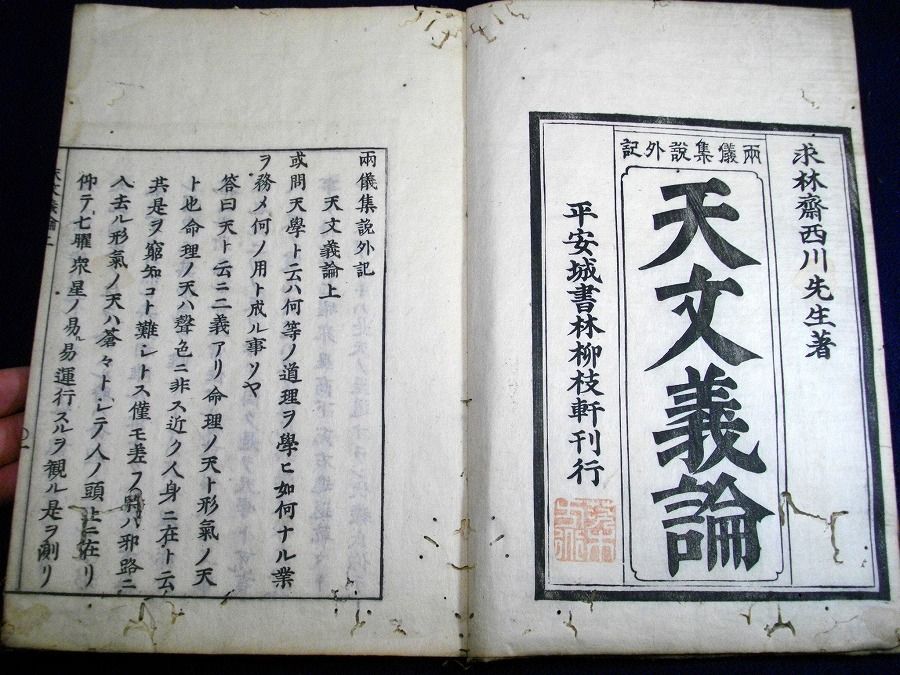 求林齋西川先生著
兩儀集說外記
天文義論
平安城書林柳枝軒刊行
兩儀集說外記
天文義論上
或問天學ト云ハ何等ノ道理ヲ學ヒ如何ナル業
ヲ務メ何ノ用ト成ル事ソヤ
答曰天ト云ニ二義アリ命理ノ天ト形氣ノ天
ト也命理ノ天ハ聲色ニ非ス近ク人身ニ在ト云
共是ヲ窮知コト難シトス僅モ差フ時ハ邪路ニ
入去ル形氣ノ天ハ蒼々トシテ人ノ頭上ニ在リ
仰テ七曜衆星ノ易易運行スルヲ観ル是ヲ測リ
天文義論上